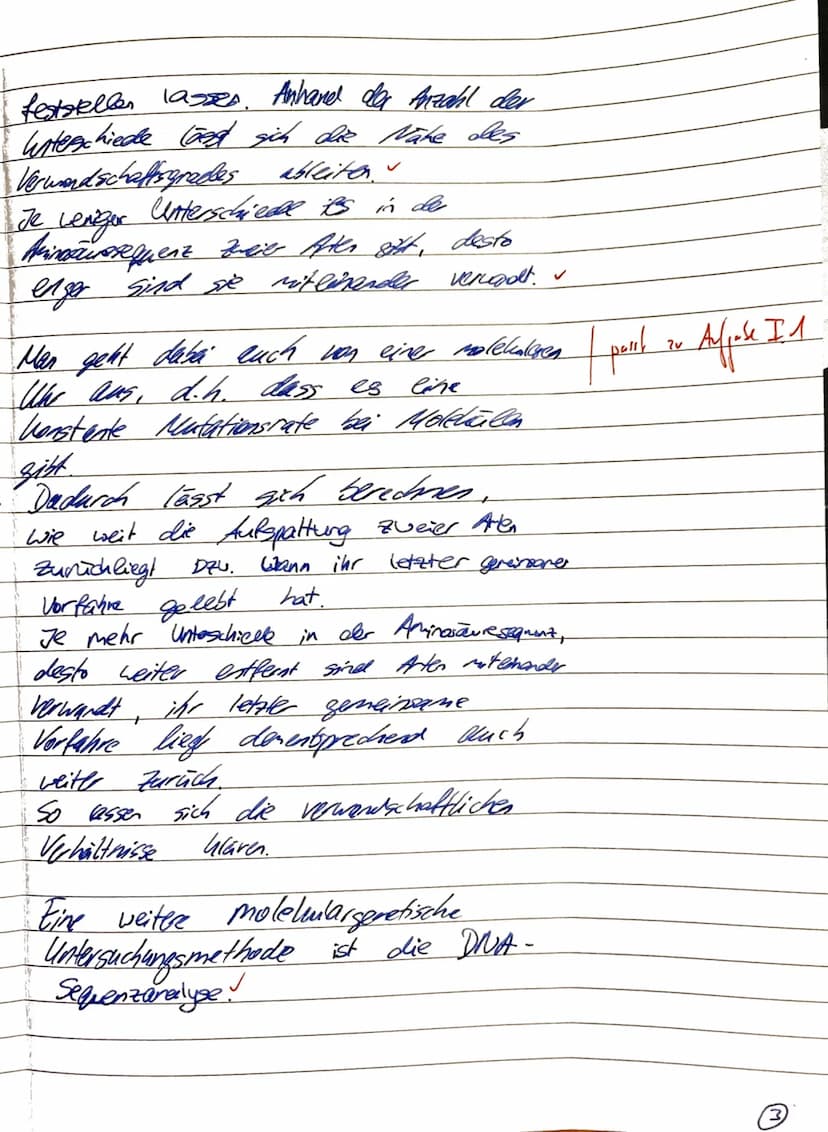 feststellen lassen. Anhand der Anzahl der
Unterschiede lässt sich die Nähe des
Verwandschaftsgrades ableiten. ✓
Je weniger Unterschiede es in der
Aminosäuresequenz zweier Arten gibt, desto
enger sind sie miteinander verwandt. ✓
Man geht dabei auch von einer molekularen | passt zu Aufgabe I.1
Uhr aus, d.h. dass es eine
konstante Mutationsrate bei Molekülen
gibt.
Dadurch lässt sich berechnen,
wie weit die Aufspaltung zweier Arten
zurückliegt bzw. wann ihr letzter gemeinsamer
Vorfahre gelebt hat.
Je mehr Unterschiede in der Aminosäuresequenz,
desto weiter entfernt sind Arten miteinander
verwandt, ihr letzter gemeinsame
Vorfahre liegt dementsprechend auch
weiter zurück.
So lassen sich die verwandschaftlichen
Verhältnisse klären.
Eine weitere molekulargenetische
Untersuchungsmethode ist die DNA-
Sequenzanalyse. ✓
3